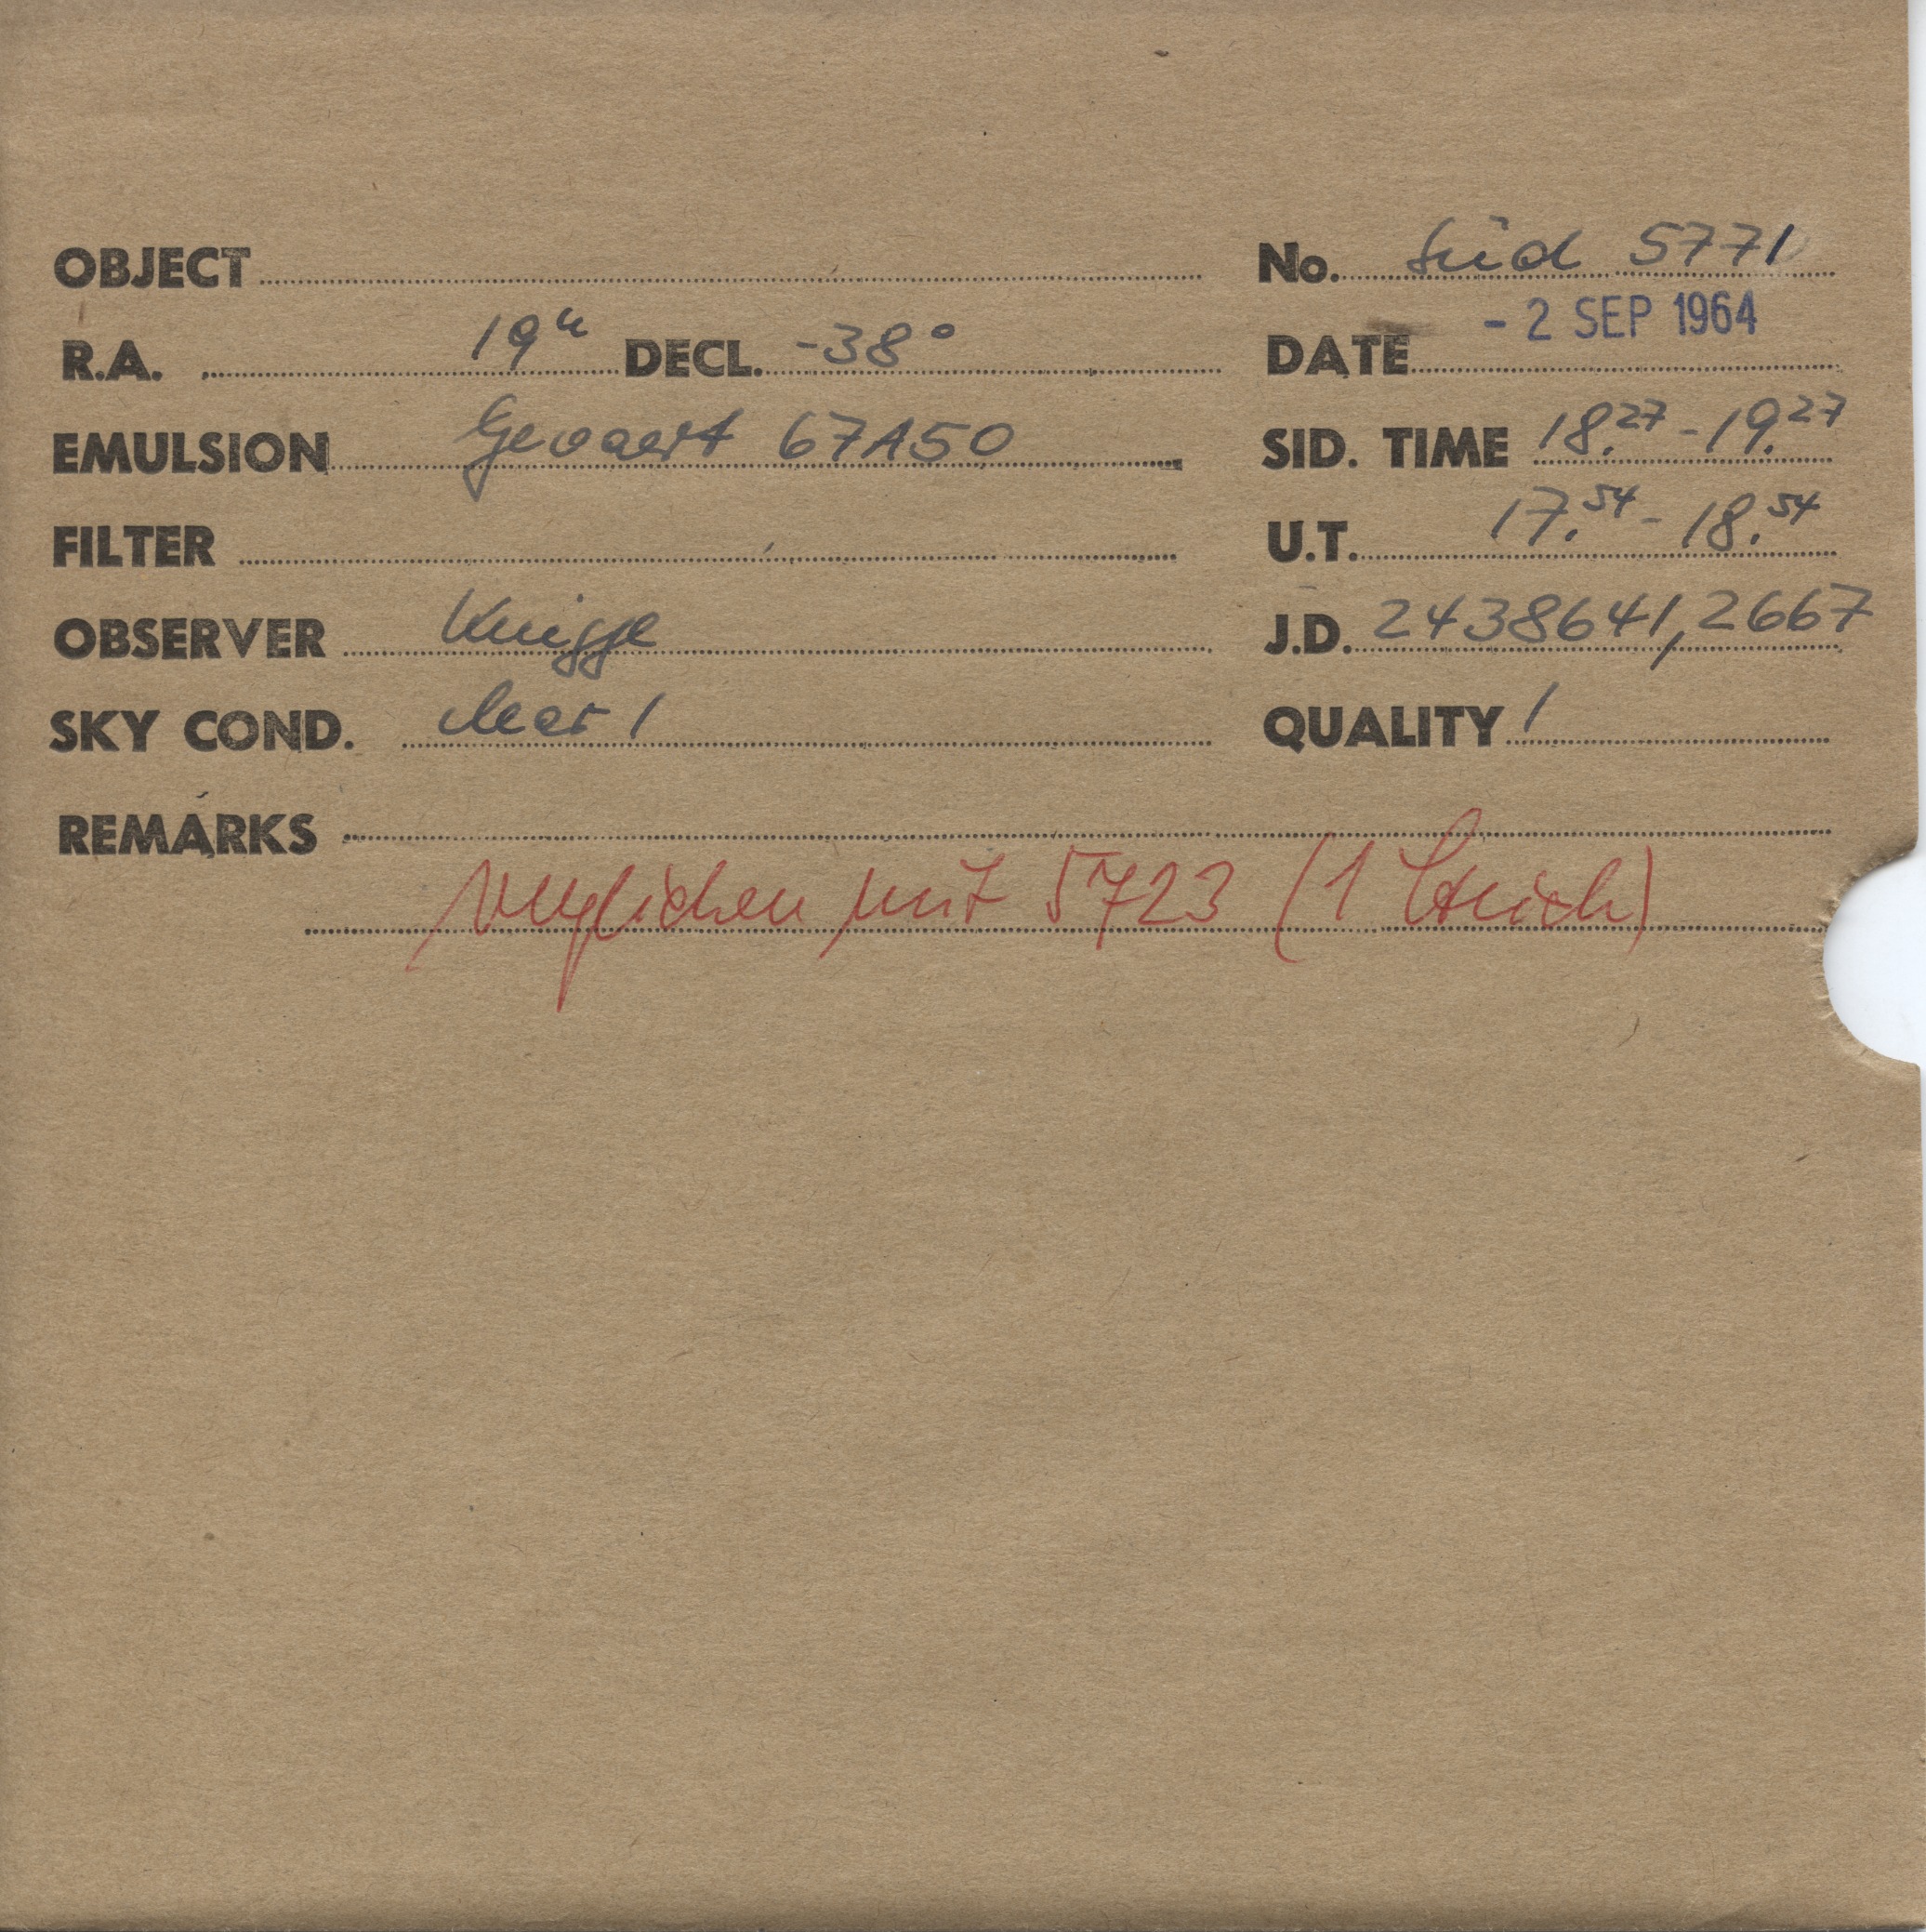 OBJECT No. Süd 5771
- 2 SEP 1964
R.A. 19h DECL. -38° DATE
EMULSION Gevaert 67A50 SID. TIME 18.27 - 19.27
FILTER U.T. 17.54 - 18.54
OBSERVER Knigge J.D. 2438641,2667
SKY COND. clear 1 QUALITY 1
REMARKS
verglichen mit 5723 (1 Strich)